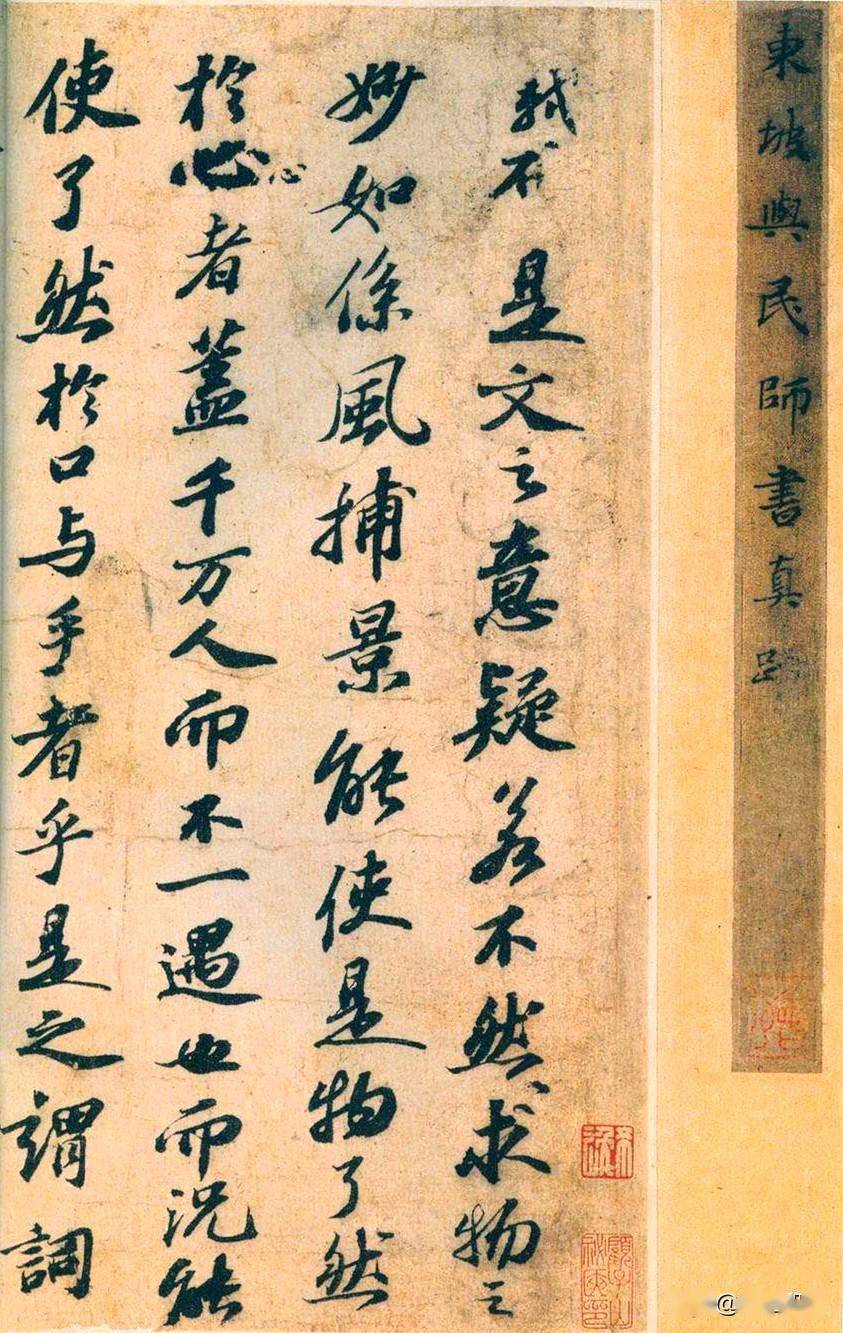 東坡與民師書真跡
軾不
是文之意疑若不然求物之
妙如係風捕景能使是物了然
於心者蓋千万人而不一遇也而況能
心
使了然於口与手者乎是之謂詞
@